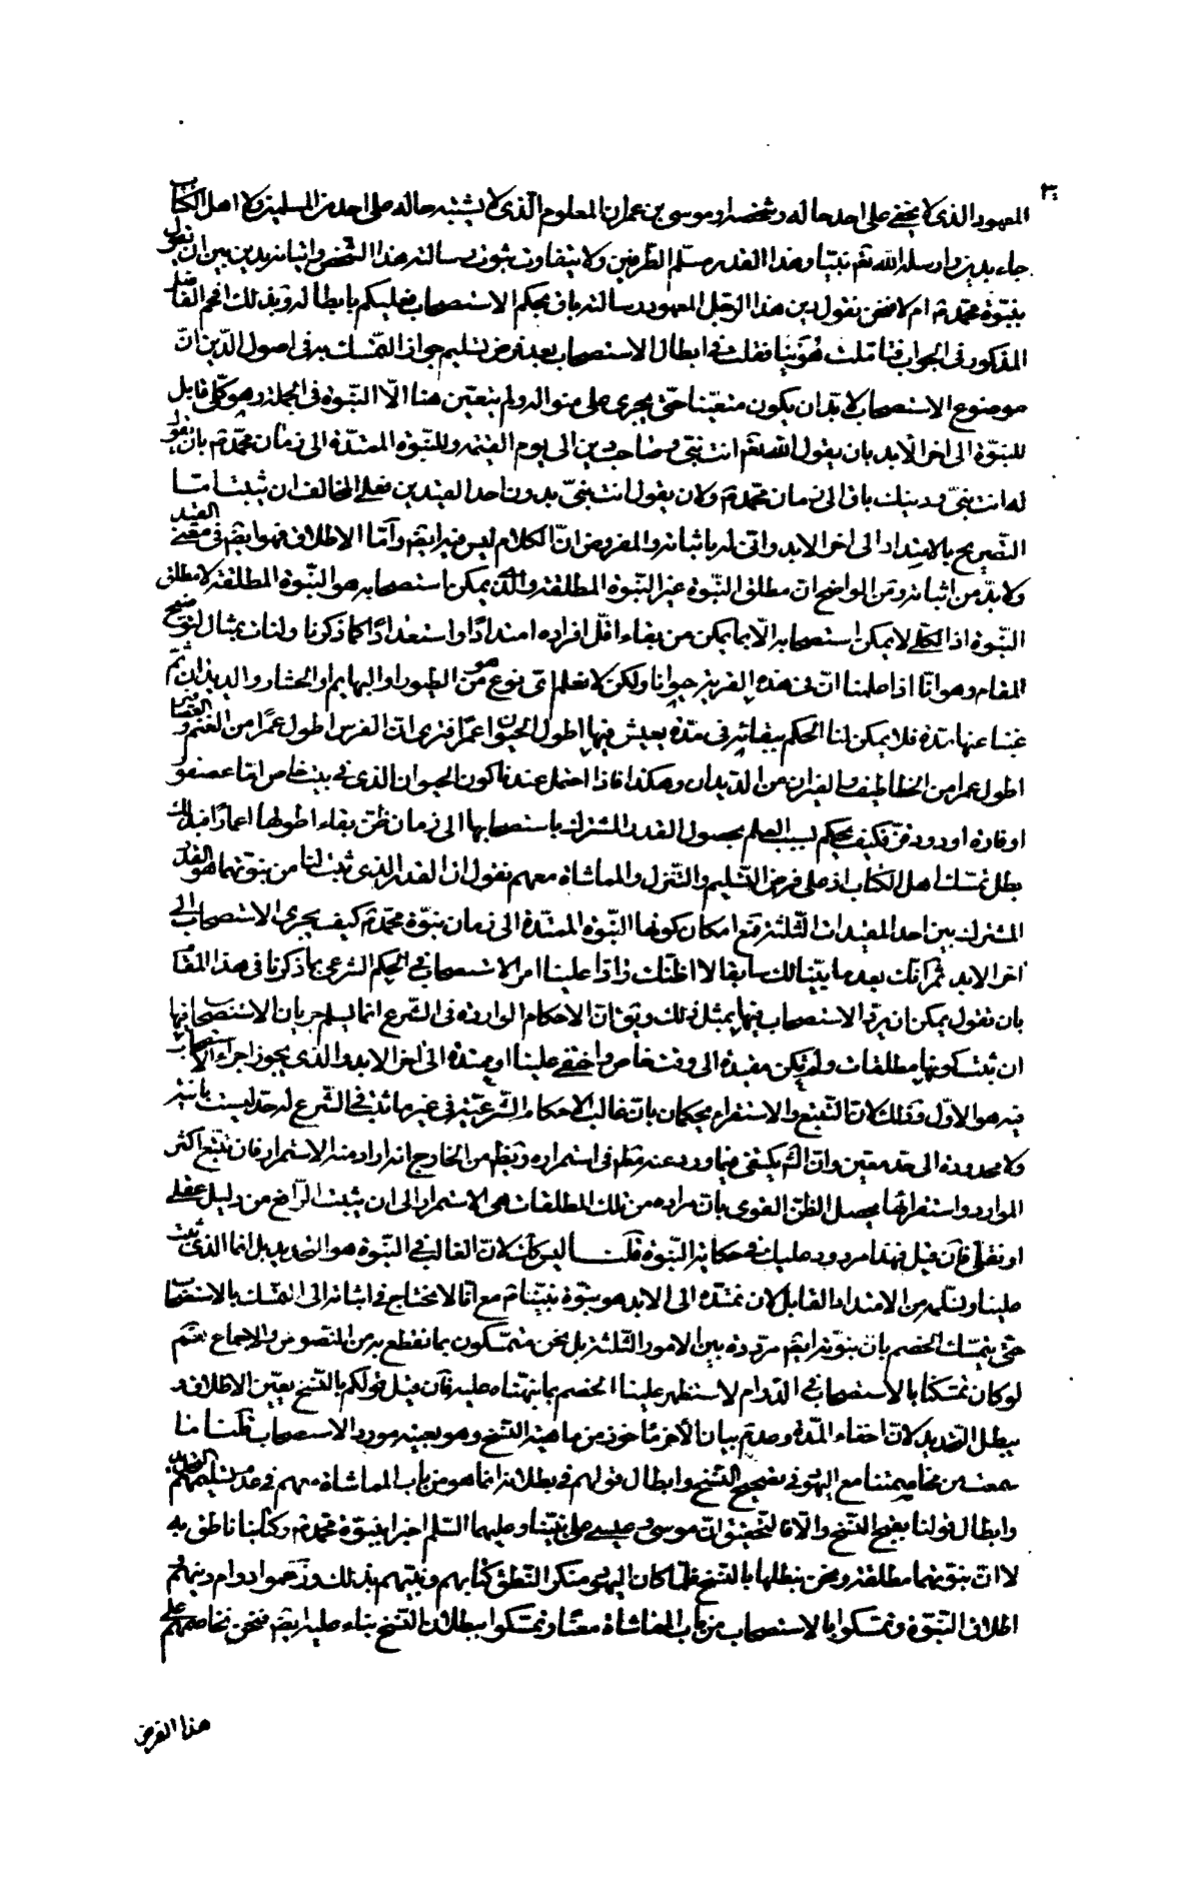 المعهود الذى لا يخفى على احد حاله وشخصه او موسى بن عمران المعلوم الّذى لا يشتبه حاله على احد من المسلمين ولا اهل الكتاب
جاء بدين وارسله الله تعم نبيّا وهذا القدر مسلّم الطّرفين ولا يتفاوت ثبوت رسالته هذا الشّخص واتيانه بدين بين ان نقول
بنبوّة محمّد ص ام لا فنحن نقول دين هذا الرّجل المعهود رسالته باق بحكم الاستصحاب فعليكم بابطاله وبذلك افحم الفاضل
المذكور فى الجواب فتامّلت هُوَيْنا فقلت فى ابطال الاستصحاب بعد فرض تسليم جواز التمسّك به فى اصول الدّين انّ
موضوع الاستصحاب لا بدّ ان يكون متعيّنا حتى يجرى على منواله ولم يتعيّن هنا الّا النّبوة فى الجملة وهو كلّى قابل
للنبوّة الى اخر الابد بان يقول الله تعم انت نبىّ وصاحب دين الى يوم القيمة وللنبوّة الممتدّة الى زمان محمّد ص بان يقول
له انت نبىّ ودينك باق الى زمان محمّد ص ولان يقول انت نبىّ بدون احد القيدين فعلى المخالف ان يثبت امّا
التّصريح بالامتداد الى اخر الابد وانّى له باثباته والمفروض انّ الكلام ليس فيه ايضم وامّا الاطلاق فهو ايضم فى معنى القيد
ولا بدّ من اثباته ومن الواضح انّ مطلق النّبوة غير النّبوة المطلقة والّذى يمكن استصحابه هو النّبوة المطلقة لا مطلق
النّبوة اذ الكلّى لا يمكن استصحابه الّا بما يمكن من بقاء اقلّ افراده امتدادًا واستعدادًا كما ذكرنا ولنات بمثال لتوضيح
المقام وهو انّا اذا علمنا انّ فى هذه القرية حيوانا ولكن لا نعلم اى نوع هو من الطيور او البهايم او الحشار والديدان ثمّ
غبنا عنها مدّة فلا يمكن لنا الحكم ببقائه فى مدّة يعيش فيها اطول الحيوان عمرًا فترى انّ الفرس اطول عمرًا من الغنم والعصافير
اطول عمرا من الخطاطيف والفيران من الديدان وهكذا فاذا احتمل عندنا كون الحيوان الذى فى بيت خاص امّا عصفور
او فارة او دود قزّ فكيف يحكم بسبب العلم بحصول القدر المشترك باستصحابها الى زمان ظنّ بقاء اطولها اعمارًا فبذلك
بطل تمسّك اهل الكتاب اذ على فرض التّسليم والتّنزل والمماشاة معهم نقول انّ القدر الذى ثبت لنا من نبوّتهما هو القدر
المشترك بين احد المقيدات الثّلثة فمع امكان كونها النّبوة الممتدّة الى زمان نبوّة محمّد ص كيف يجرى الاستصحاب الى
اخر الابد ثم انّك بعد ما بيّنا لك سابقا لا اظنّك رادّا علينا امر الاستصحاب فى الحكم الشرعى بما ذكرنا فى هذا المقام
بان نقول يمكن ان يردّ الاستصحاب فيها بمثل ذلك ويق انّ الاحكام الواردة فى الشّرع انما يسلم جريان الاستصحاب فيها
ان ثبت كونها مطلقات ولم يكن مقيدة الى وقت خاص واختفى علينا او ممتدة الى اخر الابد والذى يجوز اجراء الاستصحاب
فيه هو الاوّل وذلك لانّ التّتبع والاستقراء يحكمان بانّ غالب الاحكام الشّرعيّة فى غير ما ثبت فى الشّرع له حدّ ليست بانيّة
ولا محدودة الى حدّ معين وانّ الشم يكتفى فيما ورد عنه مطم فى استمراره ويظهر من الخارج انه اراد منه الاستمرار فانّ تتبّع اكثر
الموارد واستقرائها يحصل الظّن القوى بانّ مراده من تلك المطلقات هى الاستمرار الى ان يثبت الرّافع من دليل عقلى
او نقلى فان قيل فهذا مردود عليك فى حكاية النّبوة قلت ليس كذلك لانّ الغالب فى النّبوة هو التحديد بل انما الذى ثبت
علينا ونسلّمه من الامتداد القابل لان نمتدّه الى الابد هو نبوّة نبيّنا ص مع انّا لا نحتاج فى اثباته الى التمسّك بالاستصحاب
حتى يتمسّك الخصم بانّ نبوّته ايضم مردّدة بين الامور الثّلثة بل نحن متمسّكون بما نقطع به من النّصوص والاجماع نعم
لو كان تمسّكنا بالاستصحاب فى الدّوام لاستظهر علينا الخصم بما نبّهناه عليه فان قيل قولكم بالنّسخ يعيّن الاطلاق و
يبطل التحديد لانّ اخفاء المدّة وعدم بيان الأخر مأخوذ من ماهية النّسخ وهو بعينه مورد الاستصحاب قلنا ما
سمعت من مخاصمتنا مع اليهود فى تصحيح النّسخ وابطال قولهم فى بطلانه انما هو من باب المماشاة معهم فى عدم تسليمهم التحديد
وابطال قولنا بقبح النّسخ والّا فالتحقيق انّ موسى وعيسى على نبيّنا وعليهما السّلم اخبرا بنبوّة محمّد ص وكتابنا ناطق به
لا انّ نبوّتهما مطلقة ونحن نبطلها بالنّسخ فلمّا كان اليهود منكر النّطق كتابهم ونبيّهم بذلك وزعموا دوام دينهم
اطلاق النّبوّة وتمسّكوا بالاستصحاب من باب المماشاة معنا وتمسّكوا ببطلان النّسخ بناء عليه ايضم فنحن نخاصمهم على
هذا الفرض